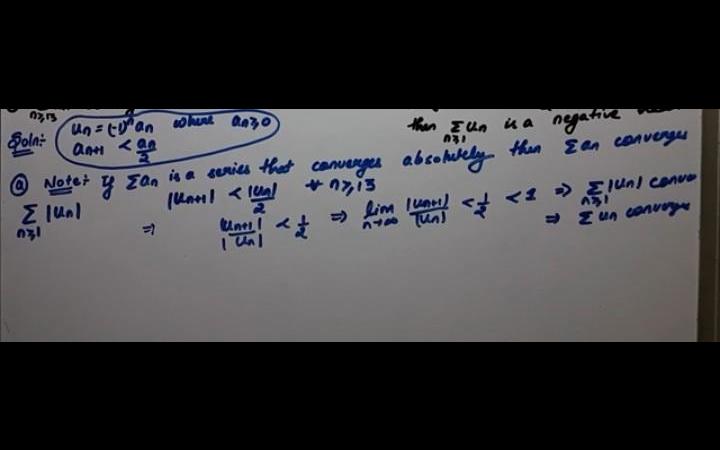 n≥13
Soln:- uₙ = (-1)ⁿ aₙ where aₙ≥0
aₙ₊₁ < aₙ/2
then Σ uₙ is a negative
n≥1
ⓐ Note:- If Σaₙ is a series that converges absolutely then Σaₙ converges
Σ |uₙ| |uₙ₊₁| < |uₙ|/2 ∀ n≥13
n≥1
⇒ |uₙ₊₁|/|uₙ| < 1/2 ⇒ lim n→∞ |uₙ₊₁|/|uₙ| < 1/2 < 1 ⇒ Σ n≥1 |uₙ| conve
⇒ Σ uₙ converges